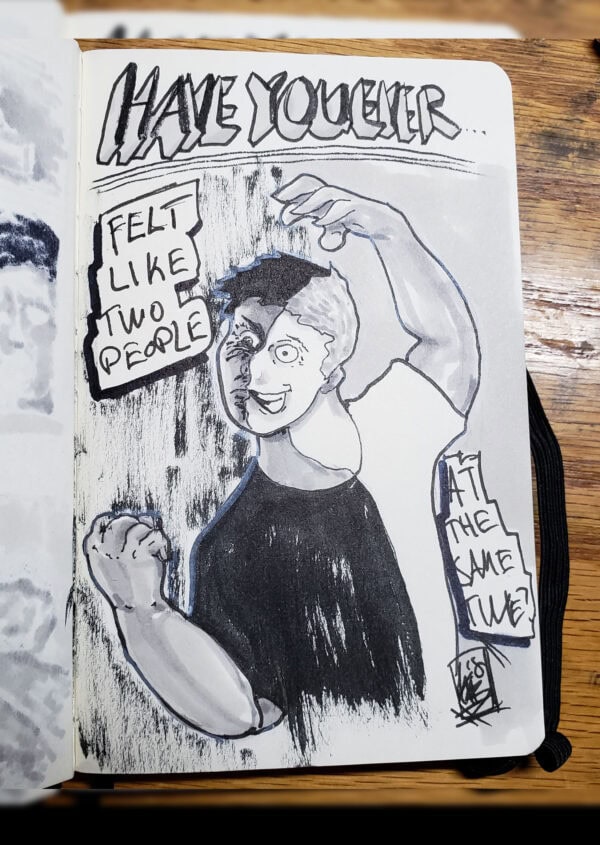 HAVE YOU EVER...
FELT
LIKE
TWO
PEOPLE
AT
THE
SAME
TIME?